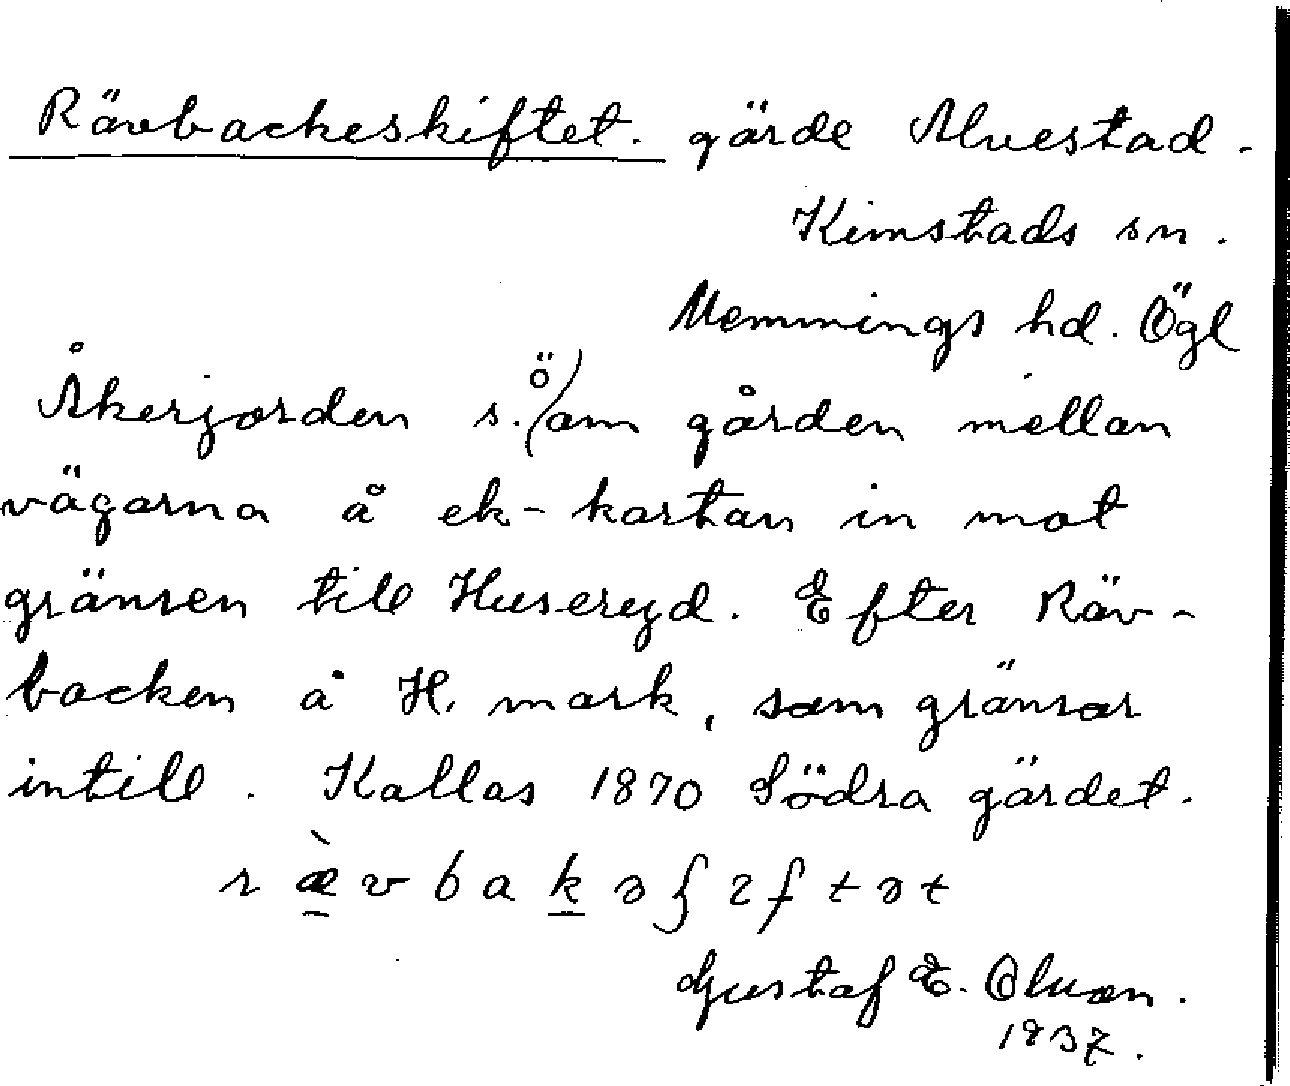 Rävbackeskiftet. gärde Alvestad.
Kimstads sn.
Memmings hd. Ögl
Åkerjorden s.(ö) om gården mellan
vägarna å ek-kartan in mot
gränsen till Huseryd. Efter Räv-
backen å H. mark, som gränsar
intill. Kallas 1870 Södra gärdet.
r æ̀ v b a k ə ʃ ɿ f t ə t
Gustaf E. Olson.
1937.